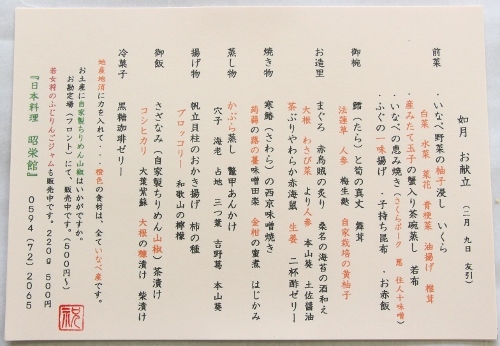 如月 お献立 (二月 九日 友引)
前菜
・いなべ野菜の柚子浸し いくら
白菜 水菜 菜花 青梗菜 油揚げ 椎茸
・産みたて玉子の蟹入り茶碗蒸し 若布
・いなべの恵み焼き(さくらポーク 葱 住人十味噌)
・ふぐの一味揚げ ・子持ち昆布 ・お赤飯
御椀
鱈(たら)と筍の真丈 舞茸
法蓮草 人参 梅生麩 自家栽培の黄柚子
お造里
まぐろ 赤烏賊の炙り 桑名の海苔の酒和え
大根 わさび菜 より人参 本山葵 土佐醤油
茶ぶりやわらか赤海鼠 生姜 二杯酢ゼリー
焼き物
寒鰆(さわら)の西京味噌焼き
蒟蒻の蕗の薹味噌田楽 金柑の蜜煮 はじかみ
蒸し物
かぶら蒸し 鼈甲あんかけ
穴子 海老 占地 三つ葉 吉野葛 本山葵
揚げ物
帆立貝柱のおかき揚げ 柿の種
ブロッコリー 和歌山の檸檬
御飯
さざなみ(自家製ちりめん山椒)茶漬け
コシヒカリ 大葉紫蘇 大根の糠漬け 柴漬け
冷菓子
黒糖珈琲ゼリー
地産地消に力を入れて・・・橙色の食材は、全ていなべ産です。
お土産に自家製ちりめん山椒はいかがですか。
お勘定場(フロント)にて、販売中です。(500円~)
若女将のふじりんごジャムも販売中です。220g 500円
『日本料理 昭栄館』 0594(72)2065
祝